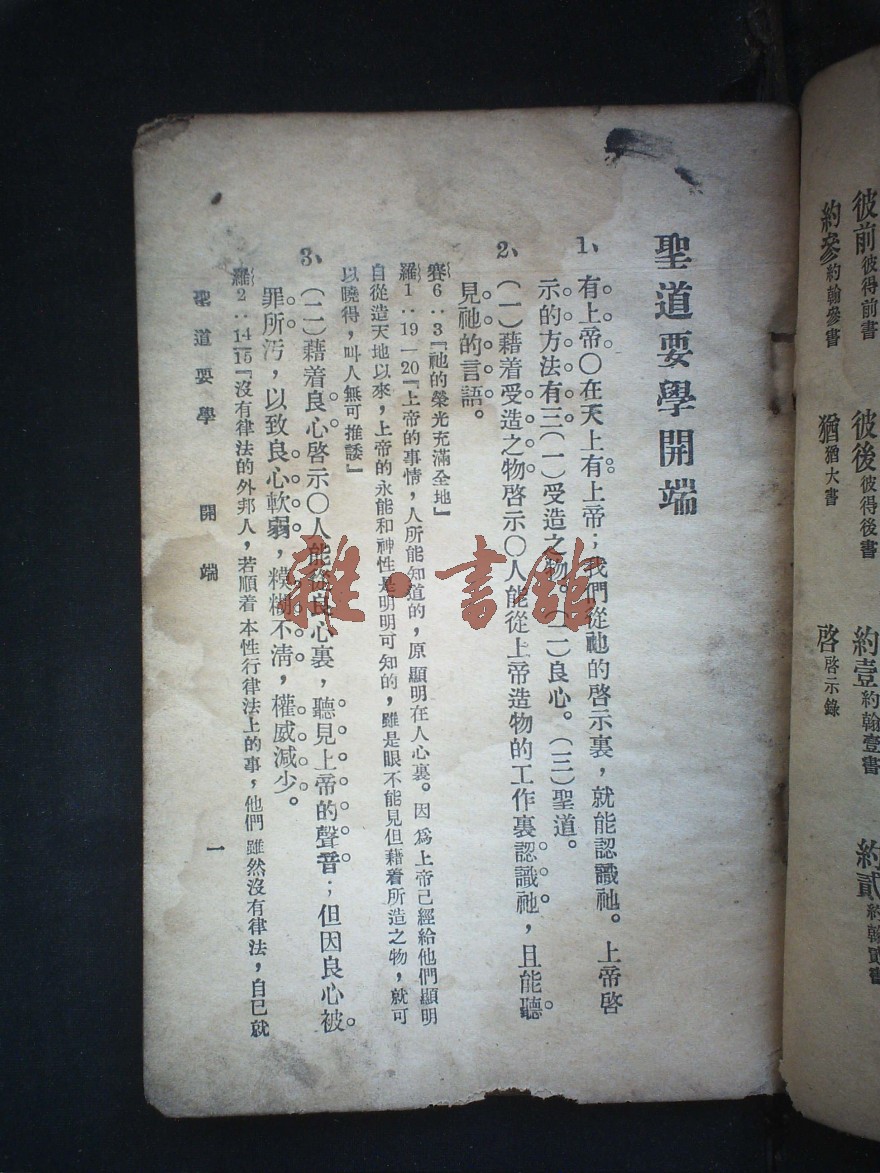 彼前彼得前書 彼後彼得後書 約壹約翰壹書 約貳約翰貳書
約參約翰參書 猶猶大書 啓啓示錄
聖道要學開端
1、有上帝〇在天上有上帝；我們從祂的啓示裏，就能認識祂。上帝啓
示的方法有三(一)受造之物。(二)良心。(三)聖道。
2、(一)藉着受造之物啓示〇人能從上帝造物的工作裏認識祂，且能聽
見祂的言語。
賽6：3『祂的榮光充滿全地』
羅1：19—20『上帝的事情，人所能知道的，原顯明在人心裏。因爲上帝已經給他們顯明
自從造天地以來，上帝的永能和神性是明明可知的，雖是眼不能見但藉着所造之物，就可
以曉得，叫人無可推諉』
3、(二)藉着良心啓示〇人能從良心裏，聽見上帝的聲音；但因良心被
罪所汚，以致良心軟弱，糢糊不淸，權威減少。
羅2：14/15『沒有律法的外邦人，若順着本性行律法上的事，他們雖然沒有律法，自己就
聖道要學 開端 一
雜·書館